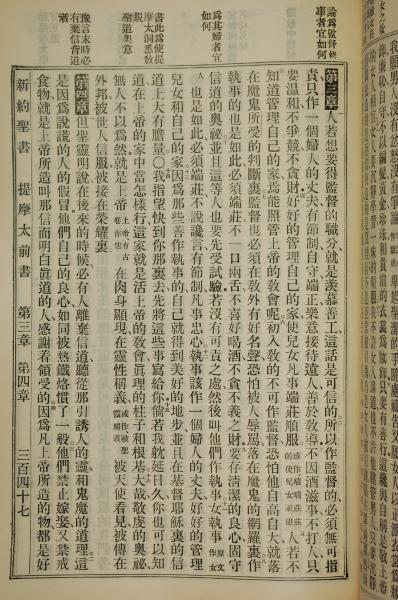 論為監督執事者宜如何
論為其婦者宜如何
書此為使提摩太洞悉敎道奧意
豫言末時必有棄信背道者
第三章 人若想要得監督的職分就是羨慕善工這話是可信的所以作監督的必須無可指
責只作一個婦人的丈夫有節制自守端正樂意接待遠人善於敎導不因酒滋事不打人只
要溫和不爭競不貪財好好的管理自己的家使兒女凡事端莊順服或作端端莊莊的使兒女順服人若不
知道管理自己的家焉能照管上帝的敎會呢初入敎的不可作監督恐怕他自高自大就落
在魔鬼所受的判斷裏監督也必須在敎外有好名聲恐怕被人辱罵落在魔鬼的網羅裏作
執事的也是如此必須端莊不一口兩舌不喜好喝酒不貪不義之財要存清潔的良心固守
信道的奧祕並且這等人也要先受試驗若沒有可責之處然後叫他們作執事女執事原文作女
人也是如此必須端莊不說讒言有節制凡事忠心執事該作一個婦人的丈夫好好的管理
兒女和自己的家因爲那些善作執事的自己就得到美好的地步並且在基督耶穌裏的信
道上大有膽量○我指望快到你那裏去先將這些事寫給你倘若我躭延日久你也可以知
道在上帝的家中當怎樣行這家就是活上帝的敎會眞理的柱子和根基大哉敬虔的奧祕
無人不以爲然就是上帝上帝有古卷作他在肉身顯現在靈性稱義或作被聖靈稱義被天使看見被傳在
外邦被世人信服被接在榮耀裏
第四章 但聖靈明說在後來的時候必有人離棄信道聽從那引誘人的靈和鬼魔的道理這
是因爲說謊的人的假冒他們自己的良心如同被熱鐵烙慣了一般他們禁止嫁娶又禁戒
食物就是上帝所造叫那信而明白眞道的人感謝着領受的因爲凡上帝所造的物都是好
新約聖書 提摩太前書 第三章 第四章 三百四十七